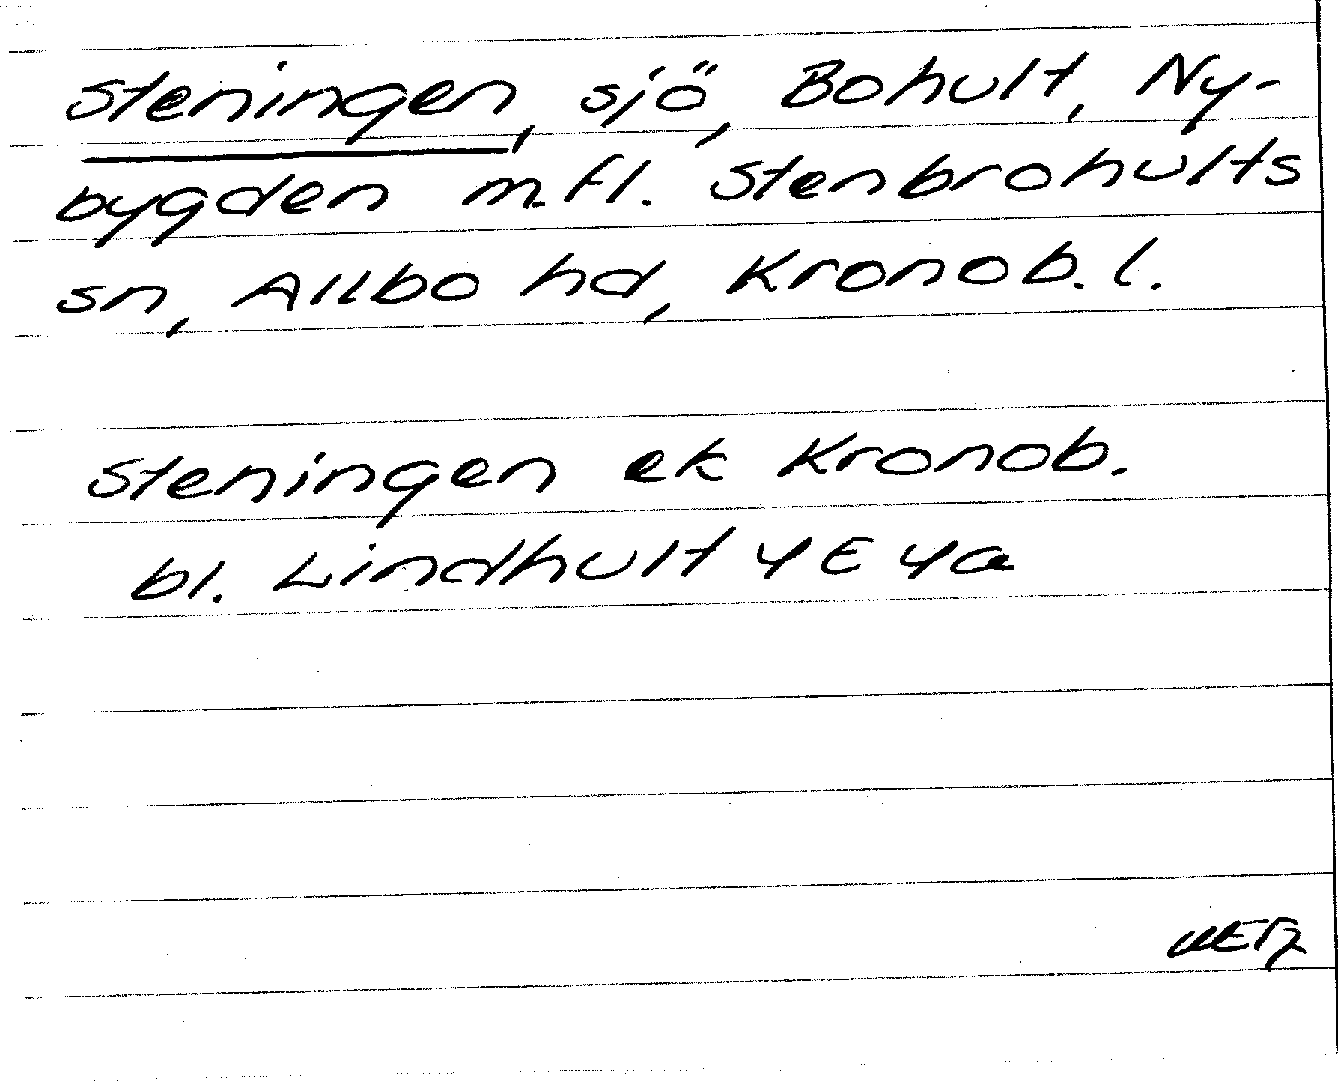 Steningen, sjö, Bohult, Ny-
bygden m.fl. Stenbrohults
sn, Allbo hd, Kronob. l.
Steningen ek Kronob.
bl. Lindhult 4E 4a